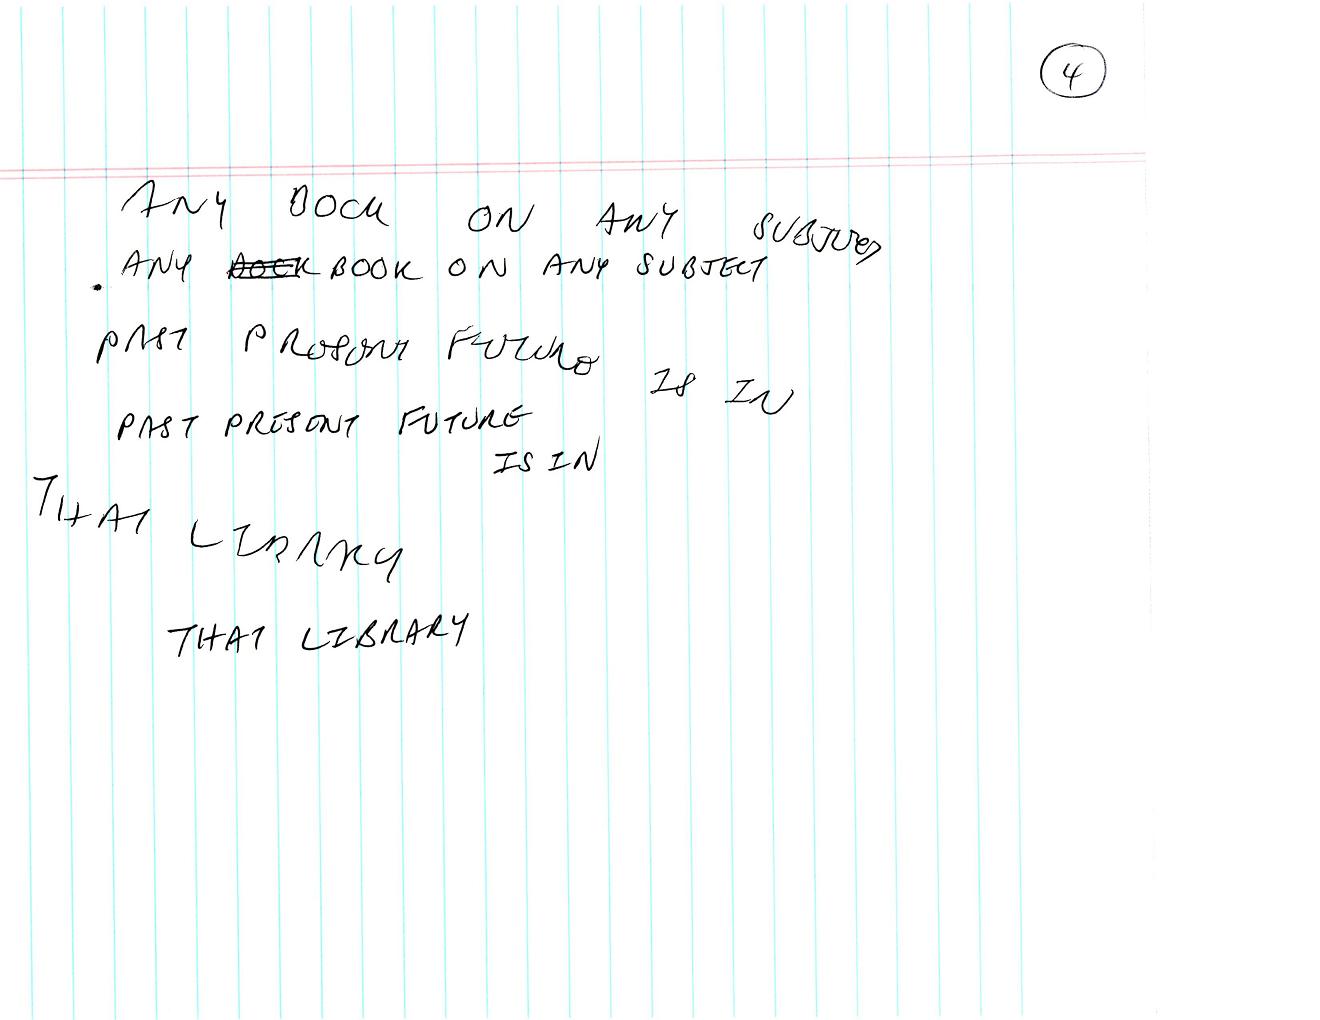 4
ANY BOOK ON ANY SUBJECT
ANY BOOK ON ANY SUBJECT
PAST PRESENT FUTURE IS IN
PAST PRESENT FUTURE
IS IN
THAT LIBRARY
THAT LIBRARY